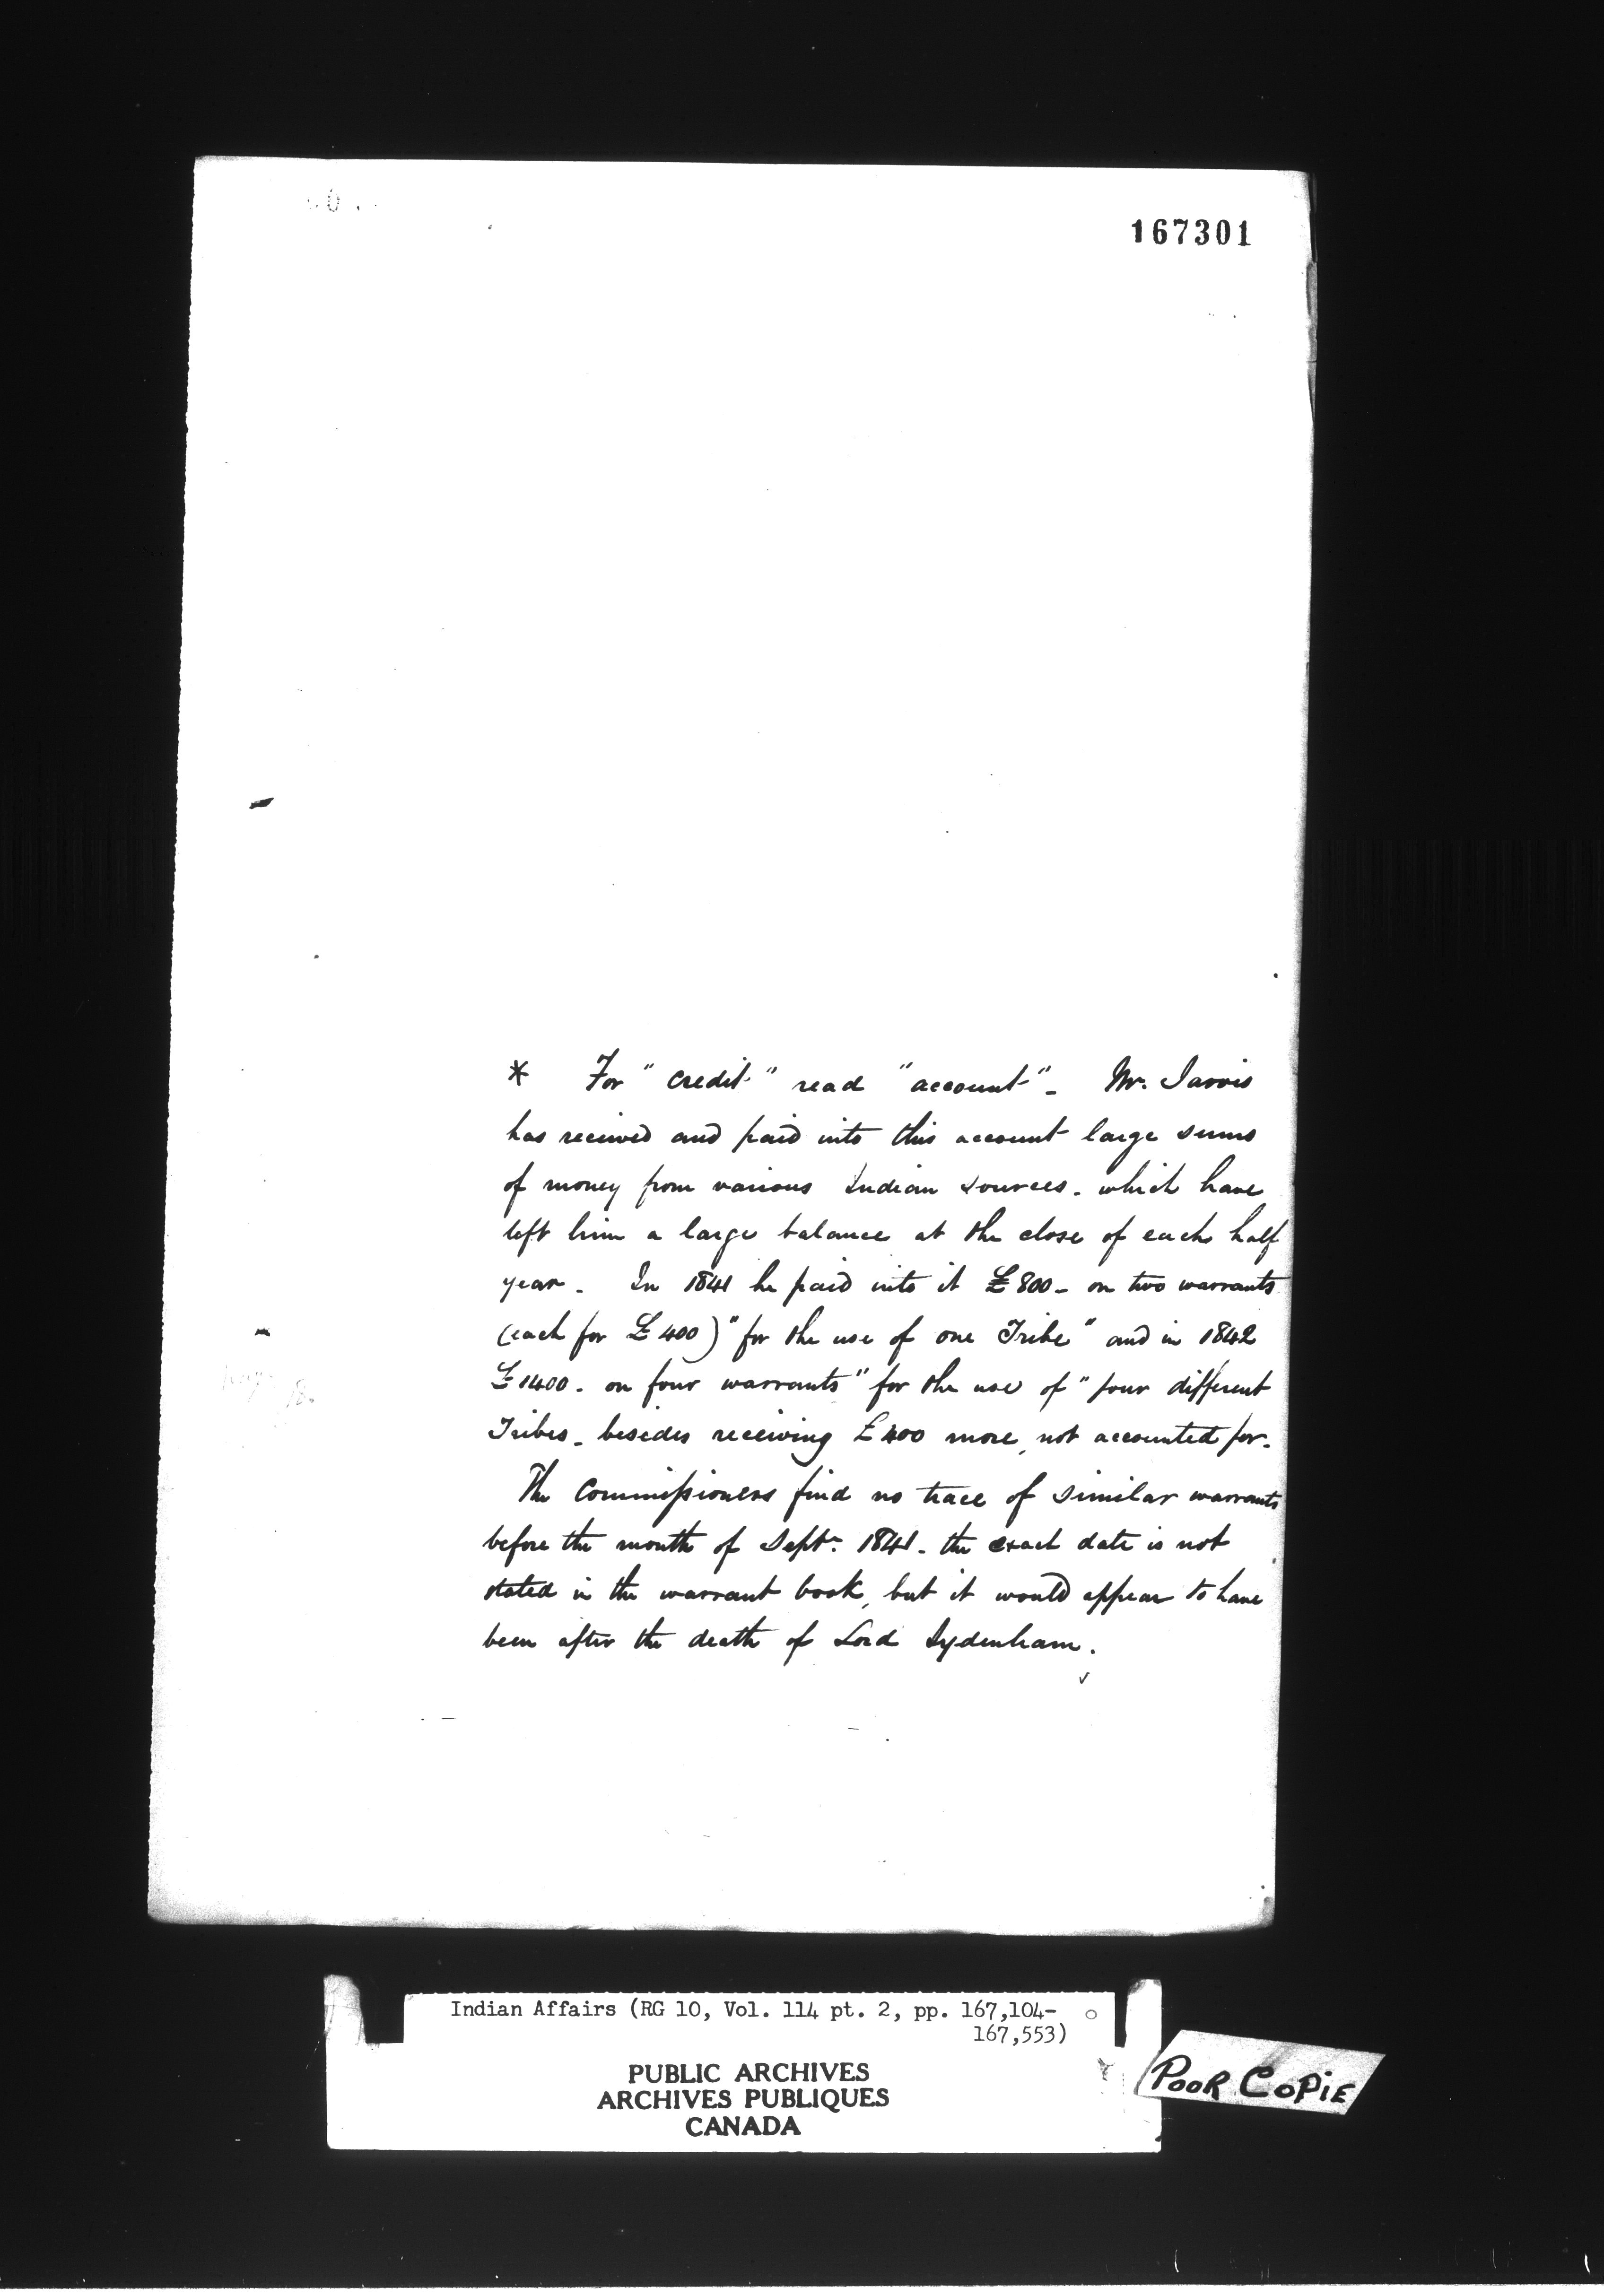 167301
* For "credit" read "account" - Mr. Jarvis
has received and paid into this account large sums
of money from various Indian sources - which have
left him a large balance at the close of each half
year - In 1841 he paid into it £800 - on two warrants
(each for £400) "for the use of one Tribe" and in 1842
£1400 - on four warrants "for the use of" four different
Tribes - besides receiving £400 more, not accounted for -
The Commissioners find no trace of similar warrants
before the month of Septr. 1841 - the exact date is not
stated in the warrant book, but it would appear to have
been after the death of Lord Sydenham.
Indian Affairs (RG 10, Vol. 114 pt. 2, pp. 167,104-
167,553)
PUBLIC ARCHIVES
ARCHIVES PUBLIQUES
CANADA
POOR COPIE